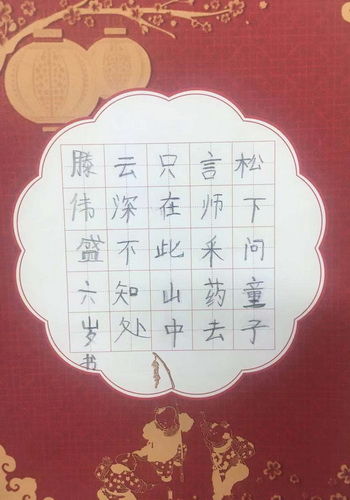 松下问童子
言师采药去
只在此山中
云深不知处
滕伟盛六岁书